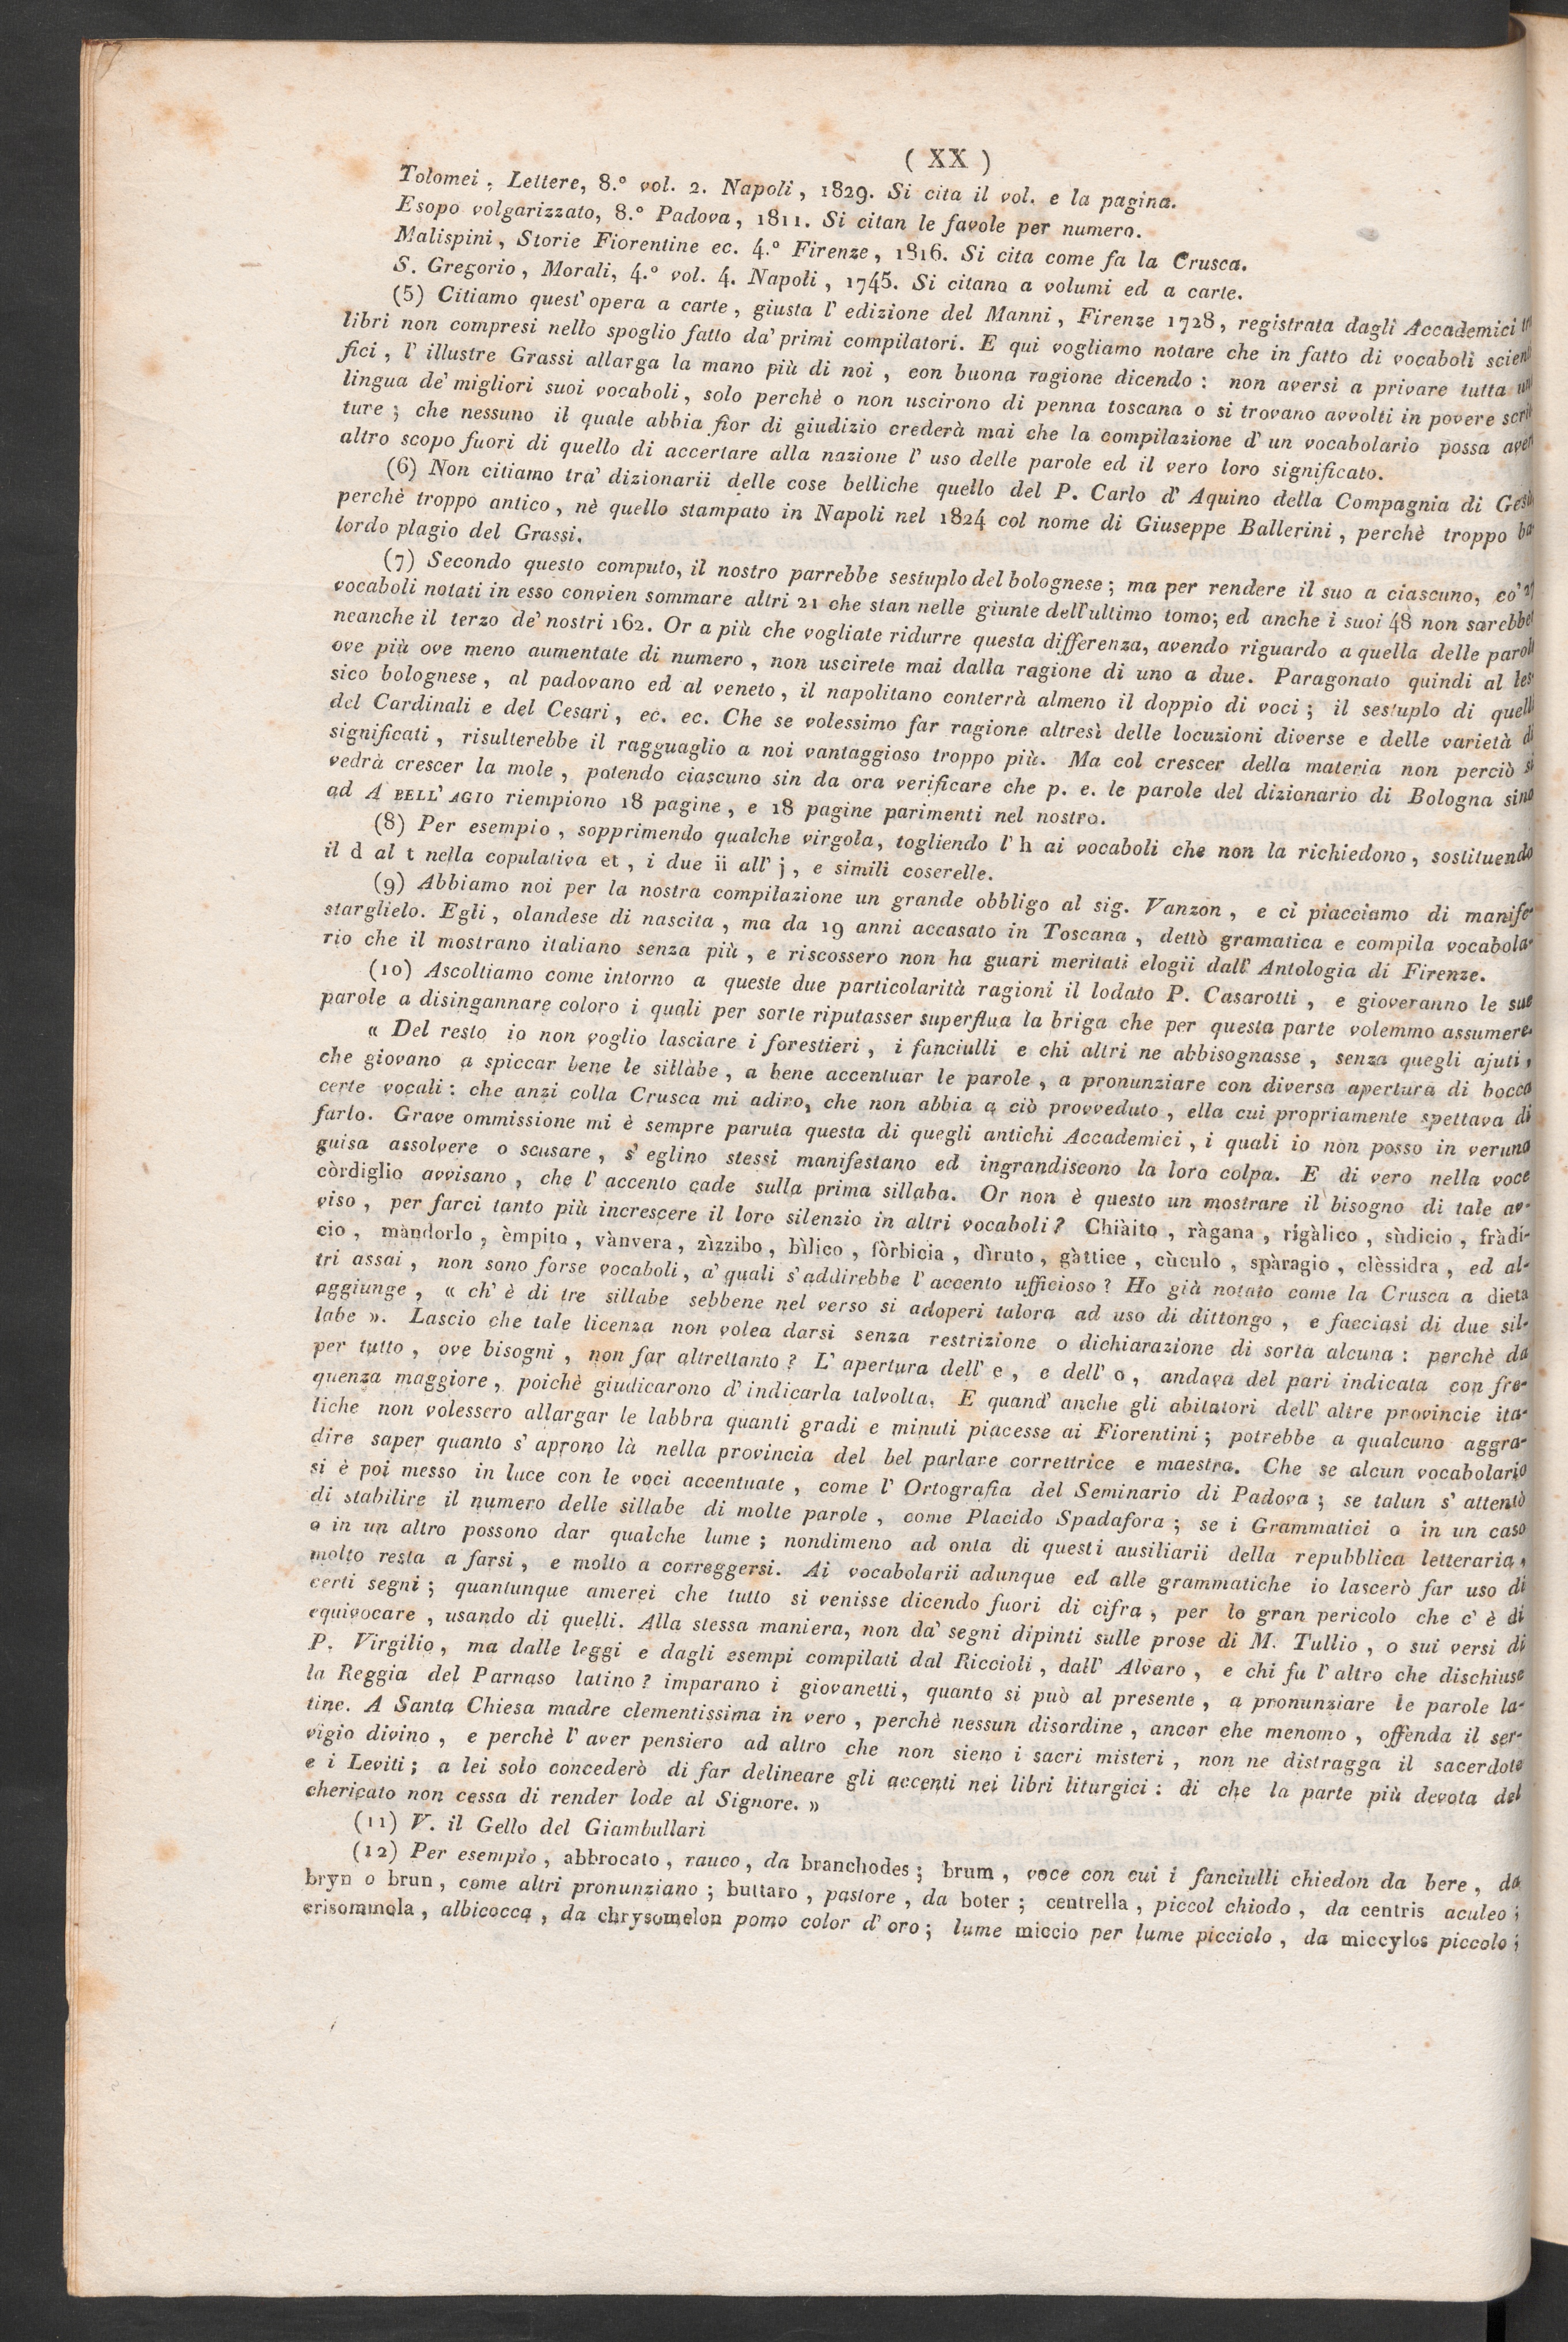 ( XX )
Tolomei, Lettere, 8.° vol. 2. Napoli, 1829. Si cita il vol. e la pagina.
Esopo volgarizzato, 8.° Padova, 1811. Si citan le favole per numero.
Malispini, Storie Fiorentine ec. 4.° Firenze, 1816. Si cita come fa la Crusca.
S. Gregorio, Morali, 4.° vol. 4. Napoli, 1745. Si citano a volumi ed a carte.
(5) Citiamo quest'opera a carte, giusta l'edizione del Manni, Firenze 1728, registrata dagli Accademici
libri non compresi nello spoglio fatto da' primi compilatori. E qui vogliamo notare che in fatto di vocaboli scienti
fici, l'illustre Grassi allarga la mano più di noi, con buona ragione dicendo: non aversi a privare tutta una
lingua de' migliori suoi vocaboli, solo perchè o non uscirono di penna toscana o si trovano avvolti in povere scrit
ture; che nessuno il quale abbia fior di giudizio crederà mai che la compilazione d'un vocabolario possa aver
altro scopo fuori di quello di accertare alla nazione l'uso delle parole ed il vero loro significato.
(6) Non citiamo tra' dizionarii delle cose belliche quello del P. Carlo d'Aquino della Compagnia di Gesù
perchè troppo antico, nè quello stampato in Napoli nel 1824 col nome di Giuseppe Ballerini, perchè troppo ba
lordo plagio del Grassi.
(7) Secondo questo computo, il nostro parrebbe sestuplo del bolognese; ma per rendere il suo a ciascuno, co' 27
vocaboli notati in esso convien sommare altri 21 che stan nelle giunte dell'ultimo tomo; ed anche i suoi 48 non sarebber
neanche il terzo de' nostri 162. Or a più che vogliate ridurre questa differenza, avendo riguardo a quella delle parole
ove più ove meno aumentate di numero, non uscirete mai dalla ragione di uno a due. Paragonato quindi al les-
sico bolognese, al padovano ed al veneto, il napolitano conterrà almeno il doppio di voci; il sestuplo di quelli
del Cardinali e del Cesari, ec. ec. Che se volessimo far ragione altresì delle locuzioni diverse e delle varietà di
significati, risulterebbe il ragguaglio a noi vantaggioso troppo più. Ma col crescer della materia non perciò si
vedrà crescer la mole, potendo ciascuno sin da ora verificare che p. e. le parole del dizionario di Bologna sino
ad A BELL' AGIO riempiono 18 pagine, e 18 pagine parimenti nel nostro.
(8) Per esempio, sopprimendo qualche virgola, togliendo l'h ai vocaboli che non la richiedono, sostituendo
il d al t nella copulativa et, i due ii all' j, e simili coserelle.
(9) Abbiamo noi per la nostra compilazione un grande obbligo al sig. Vanzon, e ci piacciamo di manife-
starglielo. Egli, olandese di nascita, ma da 19 anni accasato in Toscana, dettò gramatica e compila vocabola-
rio che il mostrano italiano senza più, e riscossero non ha guari meritati elogii dall'Antologia di Firenze.
(10) Ascoltiamo come intorno a queste due particolarità ragioni il lodato P. Casarotti, e gioveranno le sue
parole a disingannare coloro i quali per sorte riputasser superflua la briga che per questa parte volemmo assumere.
« Del resto io non voglio lasciare i forestieri, i fanciulli e chi altri ne abbisognasse, senza quegli ajuti,
che giovano a spiccar bene le sillabe, a bene accentuar le parole, a pronunziare con diversa apertura di bocca
certe vocali: che anzi colla Crusca mi adiro, che non abbia a ciò provveduto, ella cui propriamente spettava di
farlo. Grave ommissione mi è sempre paruta questa di quegli antichi Accademici, i quali io non posso in veruna
guisa assolvere o scusare, s'eglino stessi manifestano ed ingrandiscono la loro colpa. E di vero nella voce
còrdiglio avvisano, che l'accento cade sulla prima sillaba. Or non è questo un mostrare il bisogno di tale av-
viso, per farci tanto più increscere il loro silenzio in altri vocaboli? Chiàito, ràgana, rigàlico, sùdicio, fràdi-
cio, màndorlo, èmpito, vànvera, zìzzibo, bìlico, fòrbicia, dìruto, gàttice, cùculo, spàragio, clèssidra, ed al-
tri assai, non sono forse vocaboli, a' quali s'addirebbe l'accento ufficioso? Ho già notato come la Crusca a dieta
aggiunge, « ch'è di tre sillabe sebbene nel verso si adoperi talora ad uso di dittongo, e facciasi di due sil-
labe ». Lascio che tale licenza non volea darsi senza restrizione o dichiarazione di sorta alcuna: perchè da
per tutto, ove bisogni, non far altrettanto? L'apertura dell' e, e dell' o, andava del pari indicata con fre-
quenza maggiore, poichè giudicarono d'indicarla talvolta. E quand'anche gli abitatori dell'altre provincie ita-
liche non volessero allargar le labbra quanti gradi e minuti piacesse ai Fiorentini; potrebbe a qualcuno aggra-
dire saper quanto s'aprono là nella provincia del bel parlare correttrice e maestra. Che se alcun vocabolario
si è poi messo in luce con le voci accentuate, come l'Ortografia del Seminario di Padova; se talun s'attentò
di stabilire il numero delle sillabe di molte parole, come Placido Spadafora; se i Grammatici o in un caso
o in un altro possono dar qualche lume; nondimeno ad onta di questi ausiliarii della repubblica letteraria,
molto resta a farsi, e molto a correggersi. Ai vocabolarii adunque ed alle grammatiche io lascerò far uso di
certi segni; quantunque amerei che tutto si venisse dicendo fuori di cifra, per lo gran pericolo che c'è di
equivocare, usando di quelli. Alla stessa maniera, non da' segni dipinti sulle prose di M. Tullio, o sui versi di
P. Virgilio, ma dalle leggi e dagli esempi compilati dal Riccioli, dall'Alvaro, e chi fu l'altro che dischiuse
la Reggia del Parnaso latino? imparano i giovanetti, quanto si può al presente, a pronunziare le parole la-
tine. A Santa Chiesa madre clementissima in vero, perchè nessun disordine, ancor che menomo, offenda il ser-
vigio divino, e perchè l'aver pensiero ad altro che non sieno i sacri misteri, non ne distragga il sacerdote
e i Leviti; a lei solo concederò di far delineare gli accenti nei libri liturgici: di che la parte più devota del
chericato non cessa di render lode al Signore. »
(11) V. il Gello del Giambullari
(12) Per esempio, abbrocato, rauco, da branchodes; brum, voce con cui i fanciulli chiedon da bere, da
bryn o brun, come altri pronunziano; buttaro, pastore, da boter; centrella, piccol chiodo, da centris aculeo;
crisommola, albicocca, da chrysomelon pomo color d'oro; lume miccio per lume picciolo, da miccylos piccolo;